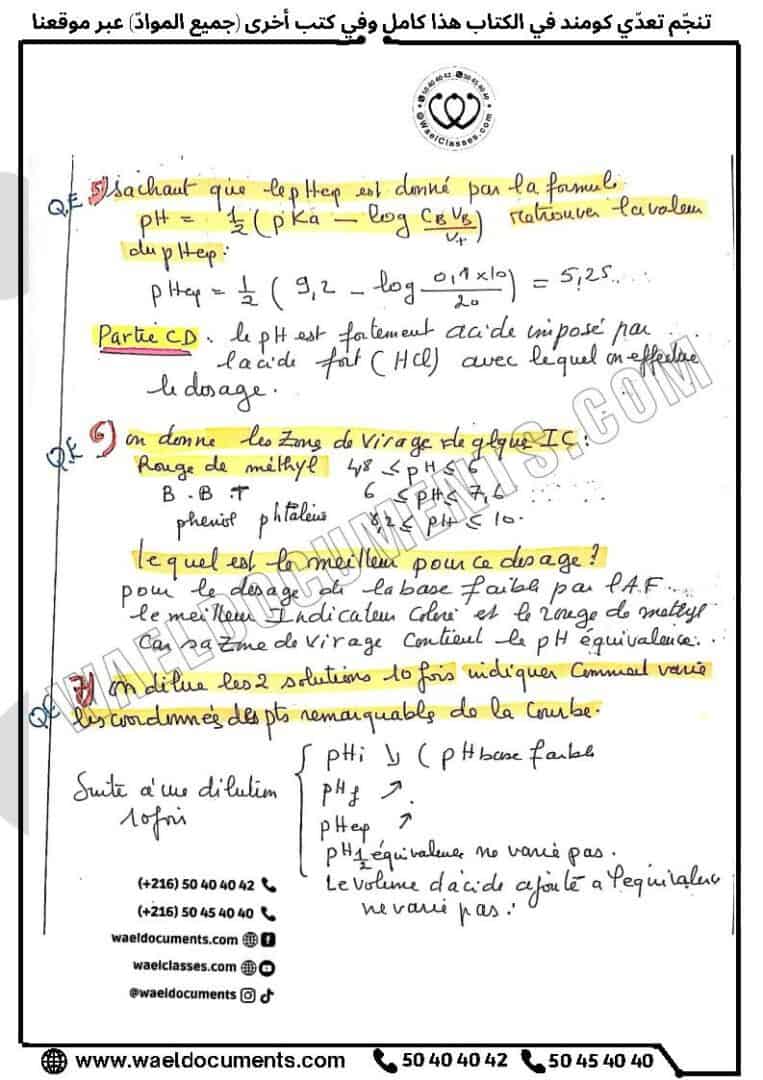 تنجّم تعدّي كومند في الكتاب هذا كامل وفي كتب أخرى (جميع الموادّ) عبر موقعنا
50 40 40 42 50 45 40 40
@WaelClasses.com
Q.E 5) sachant que le pHep est donné par la formule
pH = 1/2 (pKa - log CB VB / VT) retrouver la valeur
du pHep :
pHep = 1/2 (9,2 - log 0,1 x 10 / 20) = 5,25....
Partie CD. le pH est fortement acide imposé par
l'acide fort (HCl) avec lequel on effectue
le dosage.
Q.E 6) on donne les Zone de Virage de qlque IC :
Rouge de méthyl 4,8 ≤ pH ≤ 6
B . B . T 6 ≤ pH ≤ 7,6
phenol phtaleine 8,2 ≤ pH ≤ 10.
le quel est le meilleur pour ce dosage ?
pour le dosage de la base faible par l'AF
le meilleur Indicateur Coloré est le rouge de méthyl
Car sa Zone de Virage Contient le pH équivalence.
WAELDOCUMENTS.COM
QE 7) on dilue les 2 solutions 10 fois indiquer Comment varie
les coordonnés des pts remarquables de la Courbe.
Suite à une dilution
10 fois
pHi ↘ (pH base faible
pHf ↗.
pHep ↗
pH 1/2 équivalence ne varie pas.
Le volume d'acide ajouté a l'equivalence
ne varie pas.
(+216) 50 40 40 42
(+216) 50 45 40 40
waeldocuments.com
waelclasses.com
@waeldocuments
www.waeldocuments.com 50 40 40 42 50 45 40 40